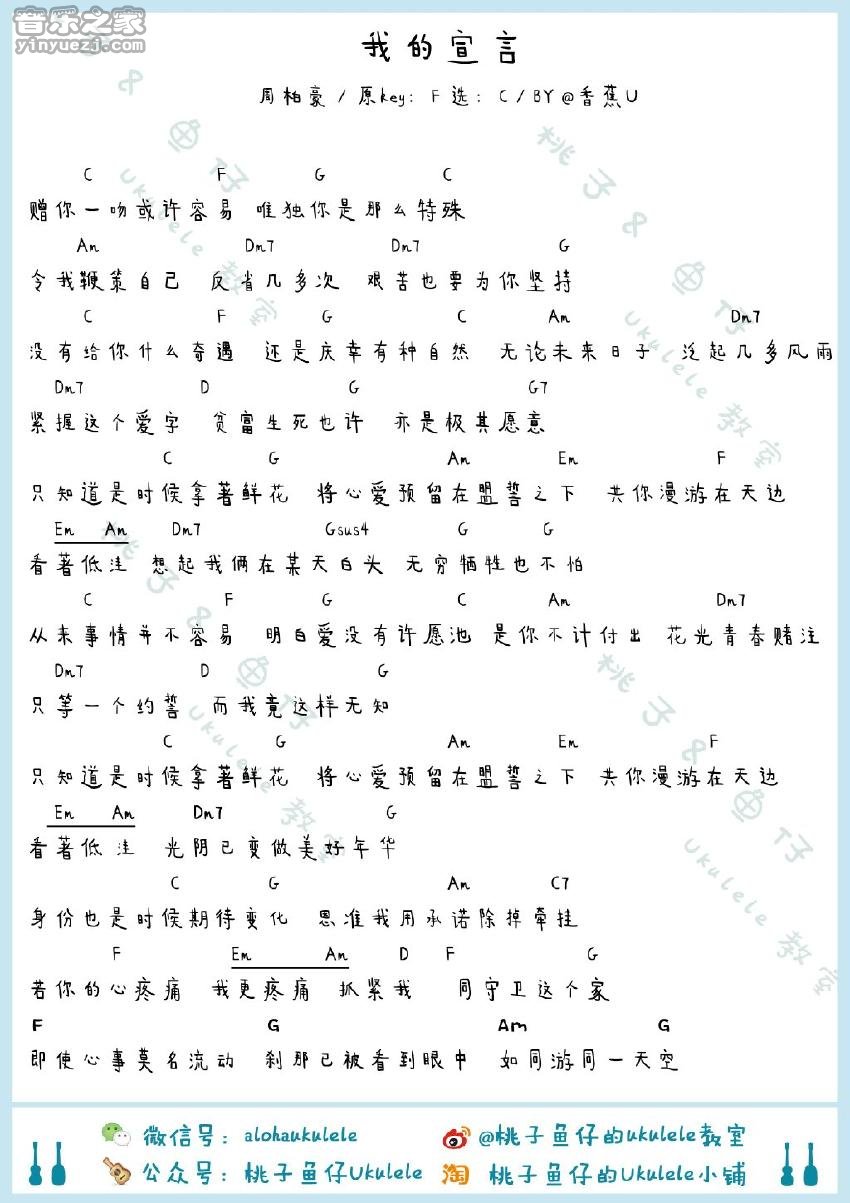 音乐之家
yinyuezj.com
我的宣言
周柏豪/原key: F 选: C/BY@香蕉U
C F G C
赠你一吻或许容易 唯独你是那么特殊
Am Dm7 Dm7 G
令我鞭策自己 反省几多次 艰苦也要为你坚持
C F G C Am Dm7
没有给你什么奇遇 还是庆幸有种自然 无论未来日子 泛起几多风雨
Dm7 D G G7
紧握这个爱字 贫富生死也许 亦是极其愿意
C G Am Em F
只知道是时侯拿著鲜花 将心爱预留在盟誓之下 共你漫游在天边
Em Am Dm7 Gsus4 G G
看著低洼 想起我俩在某天白头 无穷牺牲也不怕
C F G C Am Dm7
从来事情并不容易 明白爱没有许愿池 是你不计付出 花光青春赌注
Dm7 D G
只等一个约誓 而我竟这样无知
C G Am Em F
只知道是时侯拿著鲜花 将心爱预留在盟誓之下 共你漫游在天边
Em Am Dm7 G
看著低洼 光阴已变做美好年华
C G Am C7
身份也是时侯期待变化 恩准我用承诺除掉牵挂
F Em Am D F G
若你的心疼痛 我更疼痛 抓紧我 同守卫这个家
F G Am G
即使心事莫名流动 刹那已被看到眼中 如同游同一天空
桃子&鱼仔
Ukulele教室
桃子&鱼仔
Ukulele教室
桃子&鱼仔
Ukulele教室
桃子&鱼仔
Ukulele教室
微信号: alohaukulele
@桃子鱼仔的ukulele教室
公众号: 桃子鱼仔Ukulele
淘 桃子鱼仔的Ukulele小铺